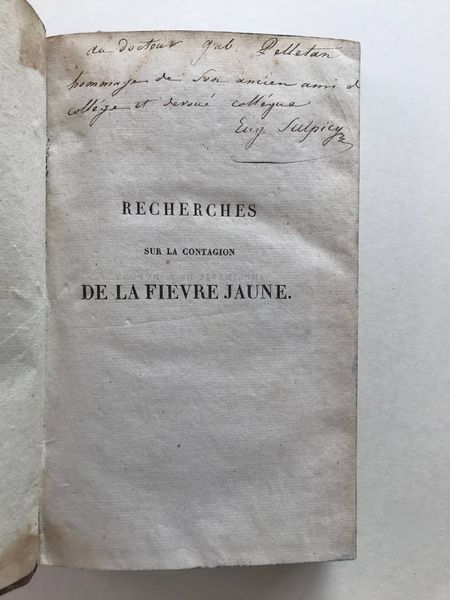 au docteur Gab. Pelletan
hommage de son ancien ami de
collège et devoué collégue
Eug Sulpicy
RECHERCHES
SUR LA CONTAGION
DE LA FIEVRE JAUNE.